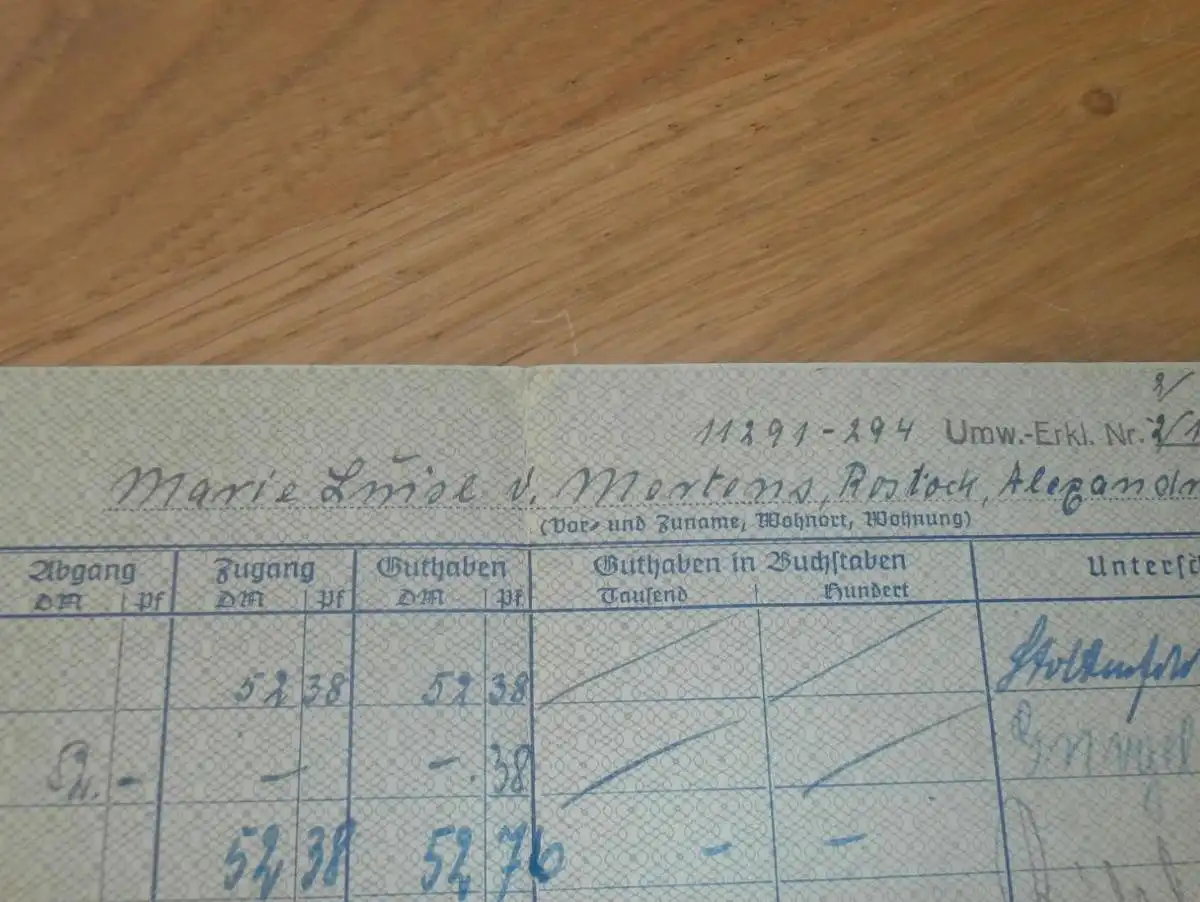 11291-294 Umw.-Erkl. Nr. 2/1
Marie Luise v. Mertens, Rostock, Alexandr
(Vor- und Zuname, Wohnort, Wohnung)
Abgang Zugang Guthaben Guthaben in Buchstaben Untersch
DM Pf DM Pf DM Pf Tausend Hundert
52 38 52 38
52. - - -. 38
52 38 52 76 - -